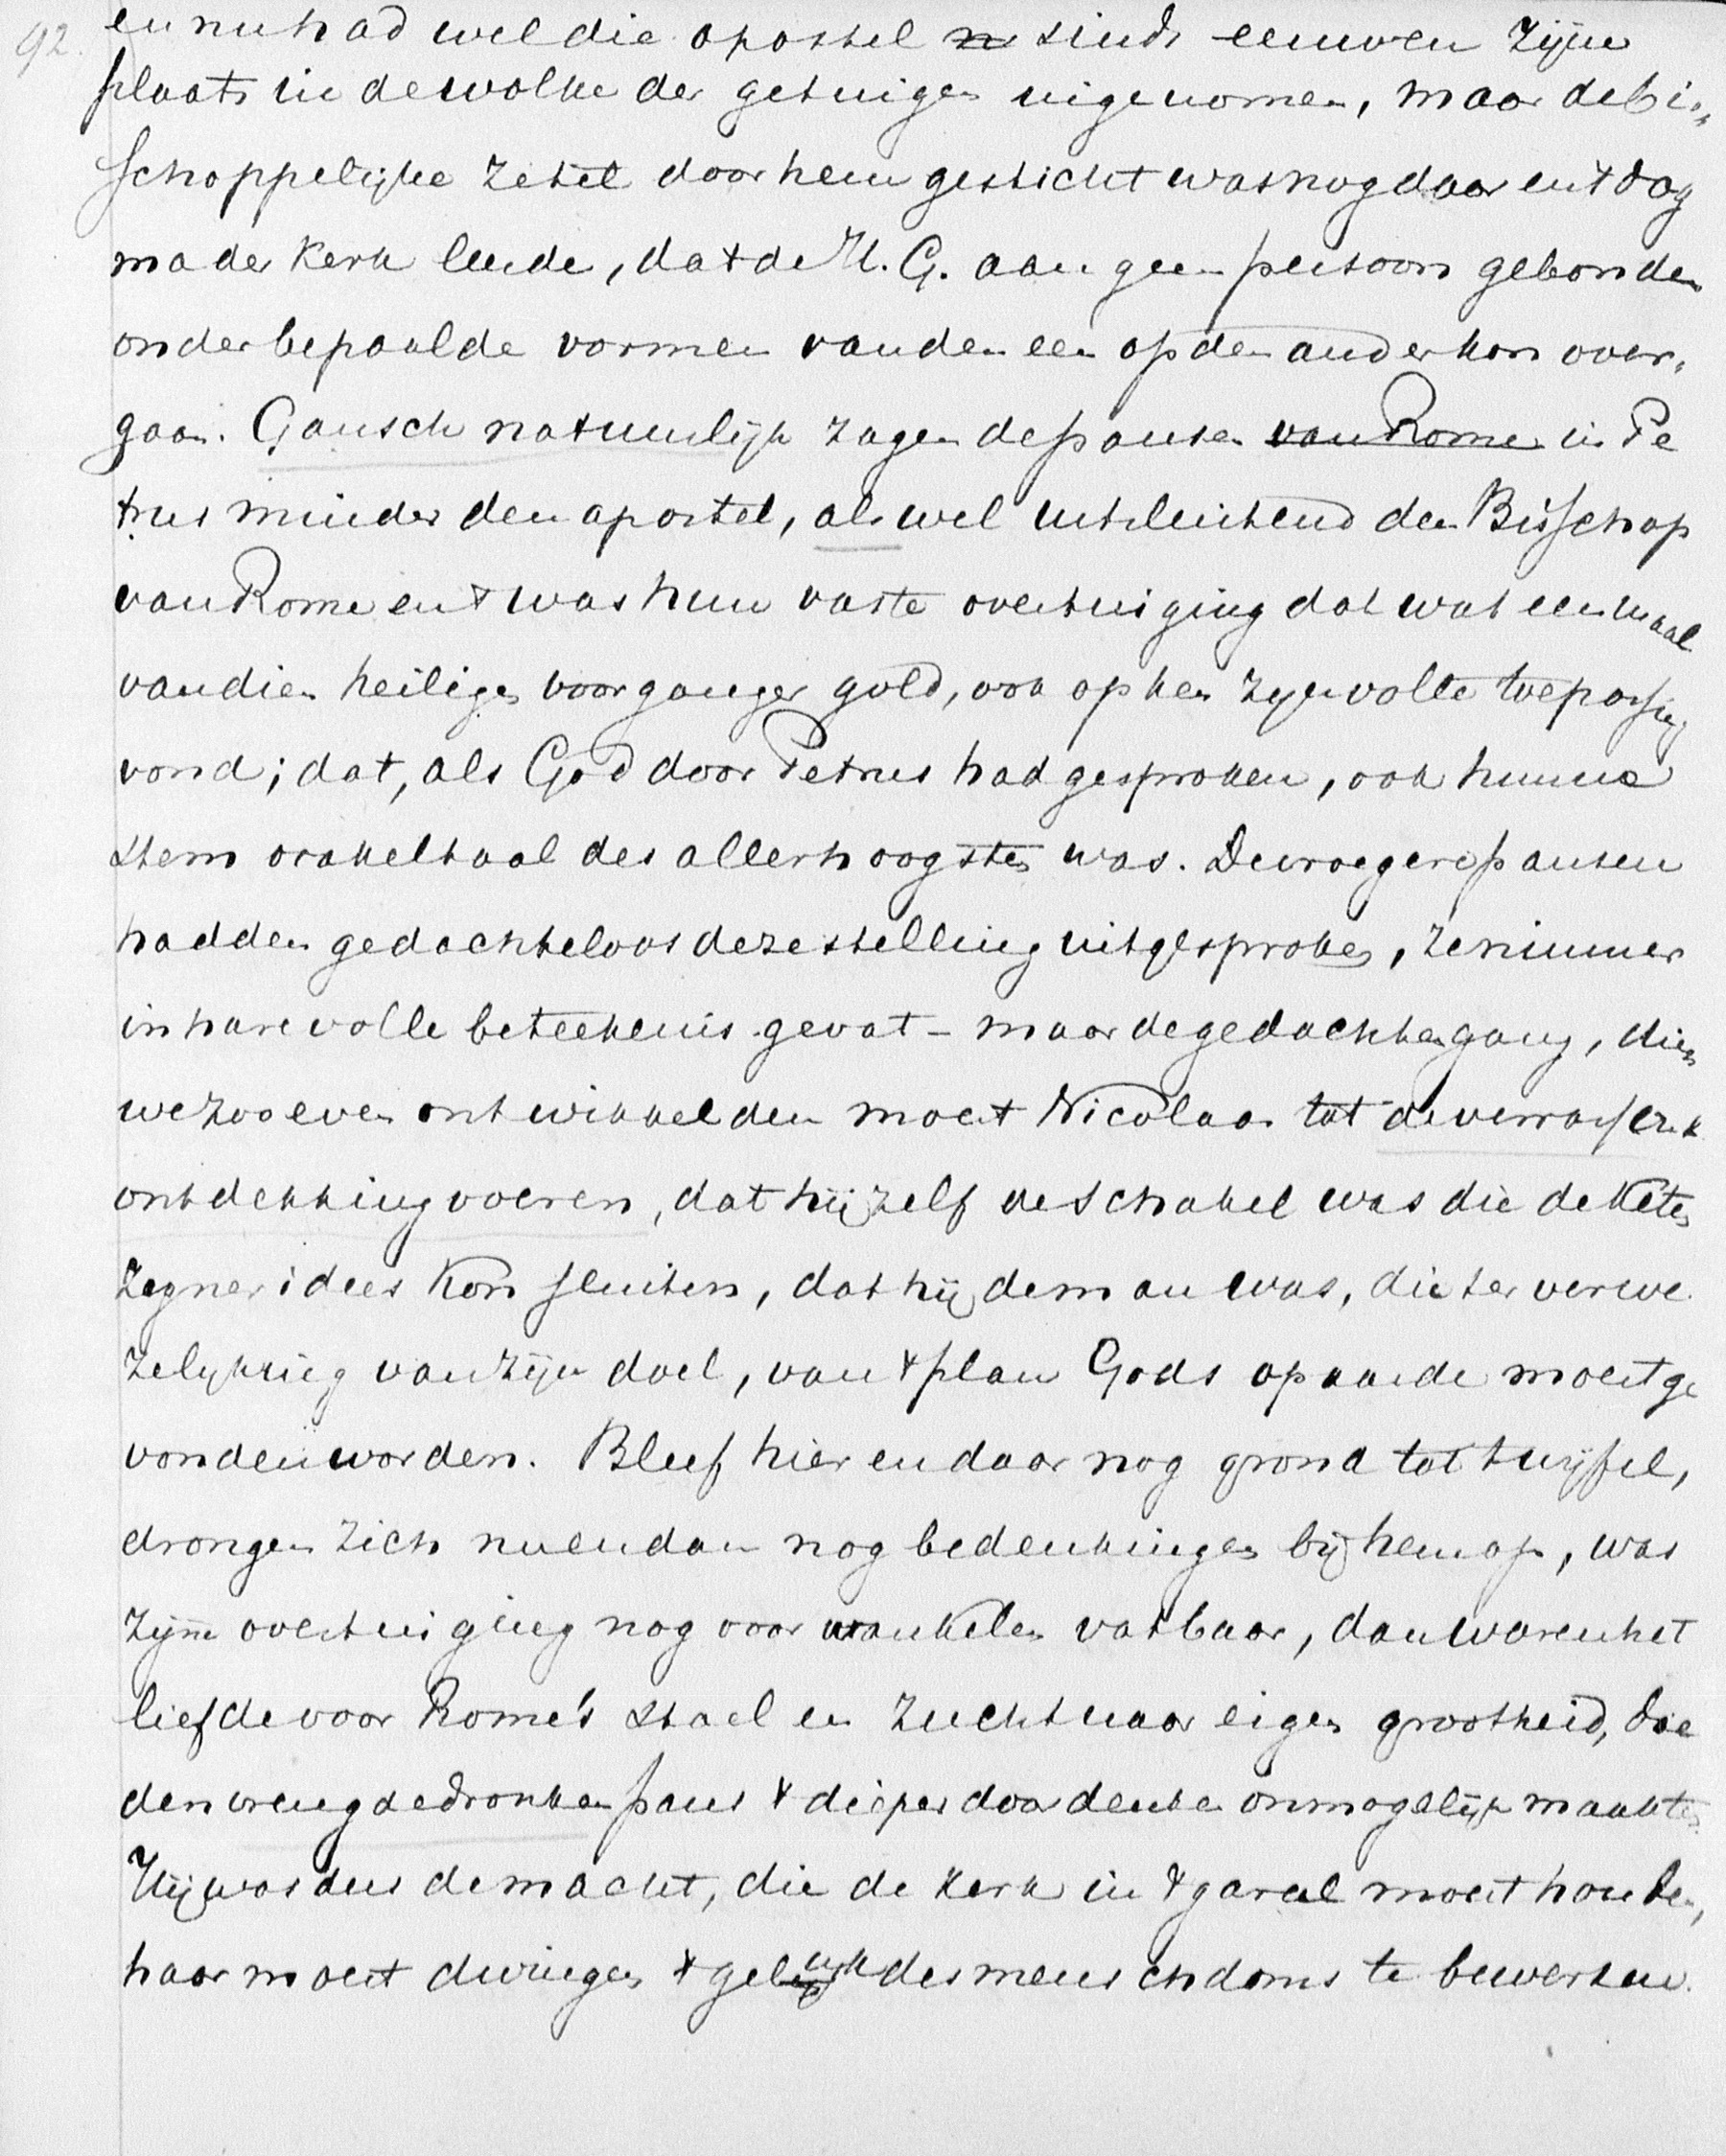 92. en nu had wel die apostel sinds eeuwen zijne
plaats in de wolke der getuigen ingenomen, maar de bis„
schoppelijke zetel door hem gesticht was nog daar en 't dog
ma der Kerk leerde, dat de H. G. aan geen persoon gebonden
onder bepaalde vormen van den een op den ander kon over„
gaan. Gansch natuurlijk zagen de pausen van Rome in Pe
trus minder den apostel, als wel uitsluitend den Bisschop
van Rome en 't was hun vaste overtuiging dat wat eenmaal
van dien heiligen voorganger gold, ook op hen zijn volle toepassing
vond; dat, als God door Petrus had gesproken, ook hunne
stem orakeltaal des allerhoogsten was. De vroegere pausen
hadden gedachteloos deze stelling uitgesproken, ze nimmer
in hare volle beteekenis gevat - maar de gedachtengang, dien
we zooeven ontwikkelden moest Nicolaas tot de verrassende
ontdekking voeren, dat hij zelf de schakel was die de keten
zijner idees kon sluiten, dat hij de man was, die ter verwe
zelijking van zijn doel, van 't plan Gods op aarde moest ge
vonden worden. Bleef hier en daar nog grond tot twijfel,
drongen zich nu en dan nog bedenkingen bij hem op, was
zijne overtuiging nog voor wankelen vatbaar, dan waren het
liefde voor Rome's stoel en zucht naar eigen grootheid, die
den vreugdedronken paus 't dieper doordenken onmogelijk maakten.
Hij was dus de macht, die de Kerk in 't gareel moest houden,
haar moest dwingen 't geluk des menschdoms te bewerken.